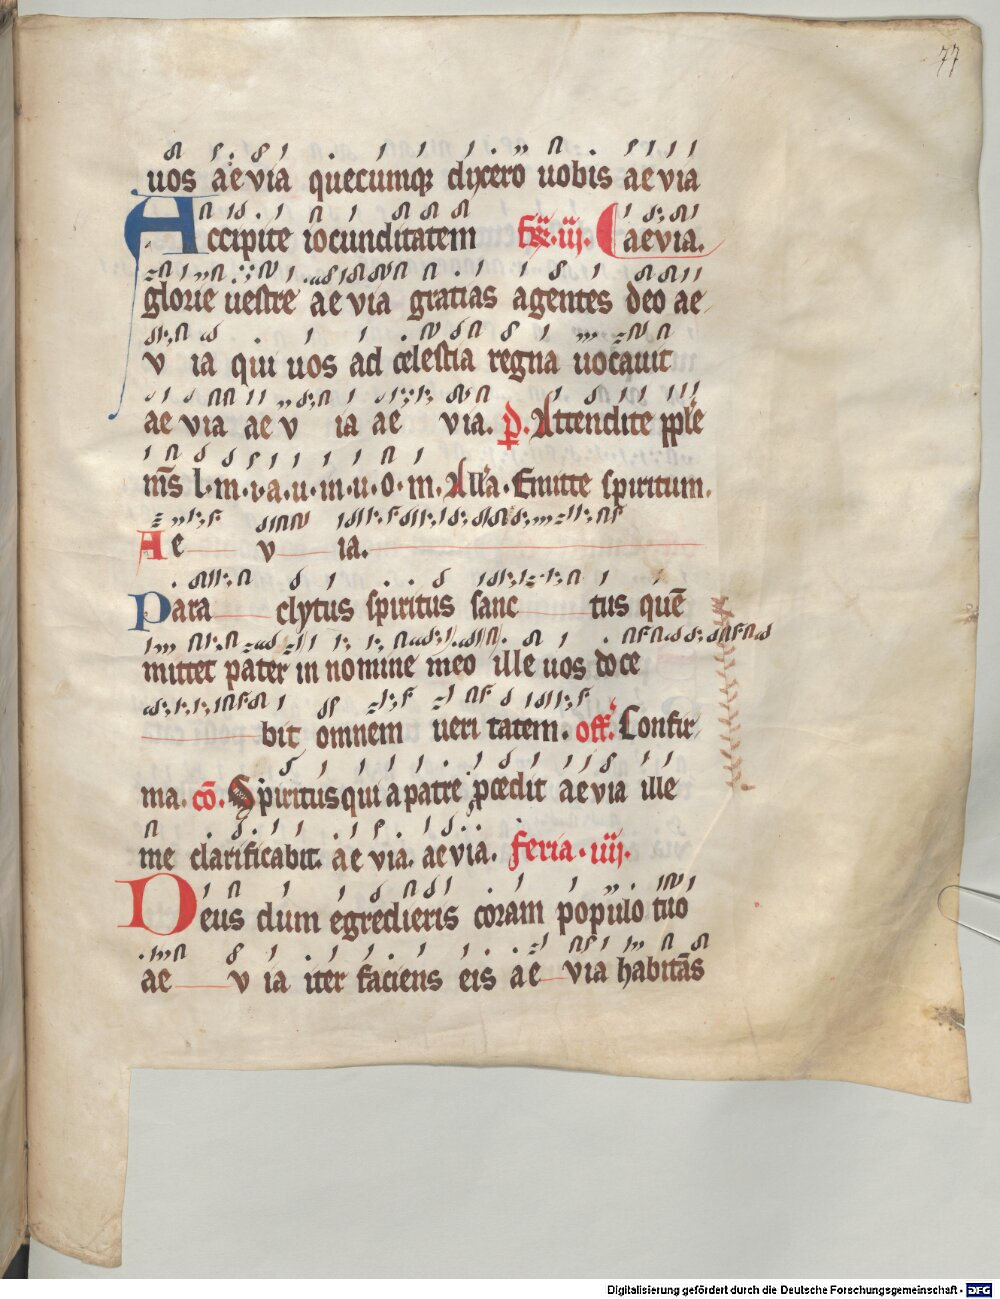 77
uos aevia quecumq; dixero uobis aevia
Accipite iocunditatem iij. aevia.
glorie uestre aevia gratias agentes deo ae
v ia qui uos ad celestia regna uocauit
ae via ae v ia ae via. Attendite pple
ms l·m·i·a·u·in·u·o·m. Alla. Emitte spiritum.
Ae v ia.
Para clytus spiritus sanc tus quē
mittet pater in nomine meo ille uos doce
bit omnem ueri tatem. off. Confir
ma. cō. Spiritus qui a patre pcedit aevia ille
me clarificabit. aevia. aevia. feria·iiij.
Deus dum egredieris coram populo tuo
ae v ia iter faciens eis ae via habitās
Digitalisierung gefördert durch die Deutsche Forschungsgemeinschaft - DFG